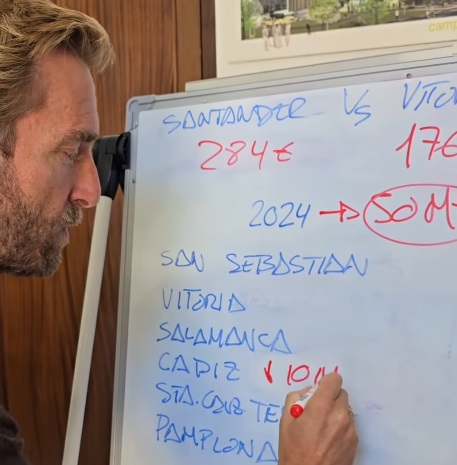 camp
SANTANDER VS VITOR
284€ 176
2024 → 50 M
SAN SEBASTIAN
VITORIA
SALAMANCA
CADIZ ↓ 10
STA. CRUZ TE
PAMPLONA